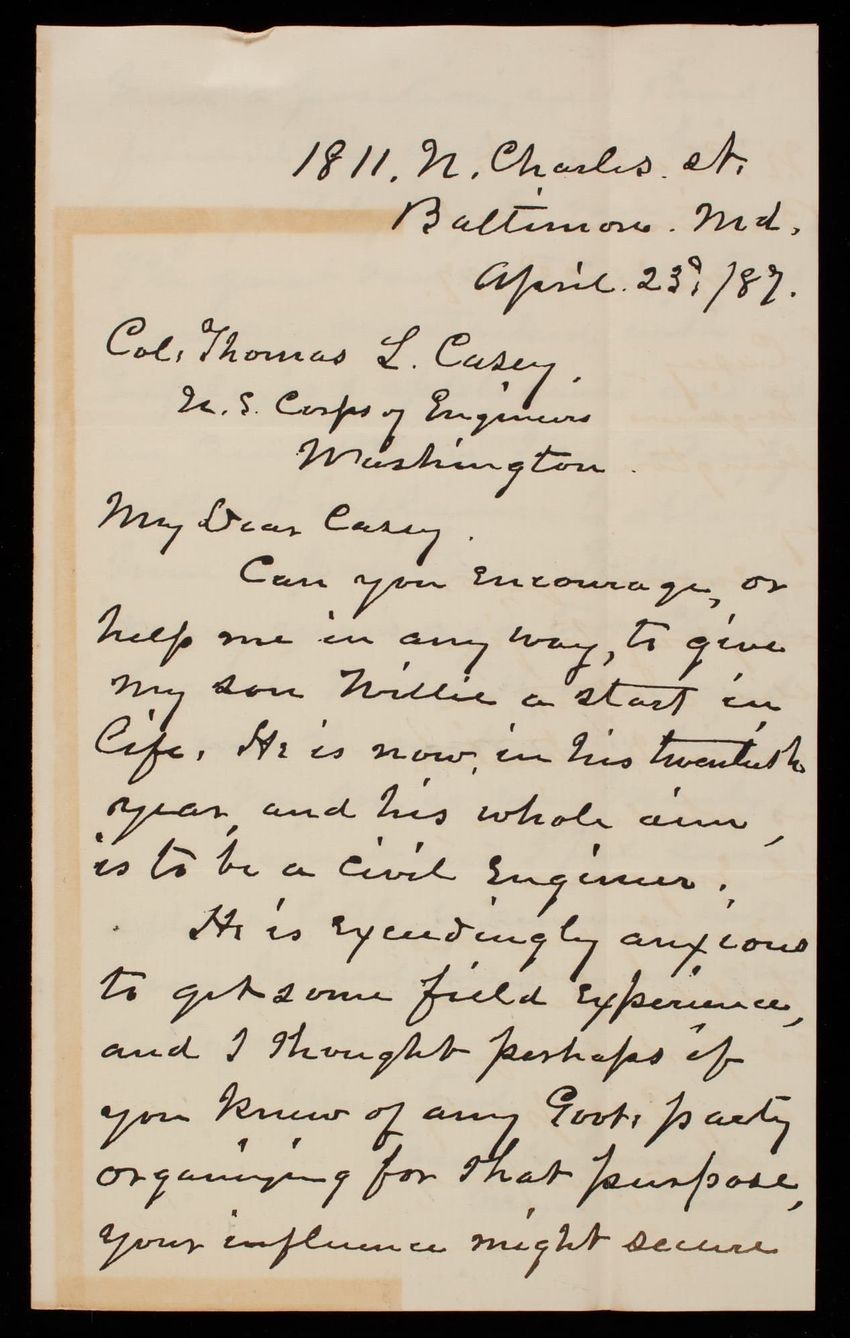 1811. N. Charles. st.
Baltimore. Md.
April. 23d, /87.
Col. Thomas L. Casey,
U. S. Corps of Engineers
Washington.
My Dear Casey.
Can you encourage, or
help me in any way, to give
my son Willie a start in
life. He is now, in his twentieth
year, and his whole aim,
is to be a Civil Engineer.
He is exceedingly anxious
to get some field experience,
and I thought perhaps if
you knew of any Govt. party
organizing for that purpose,
your influence might secure